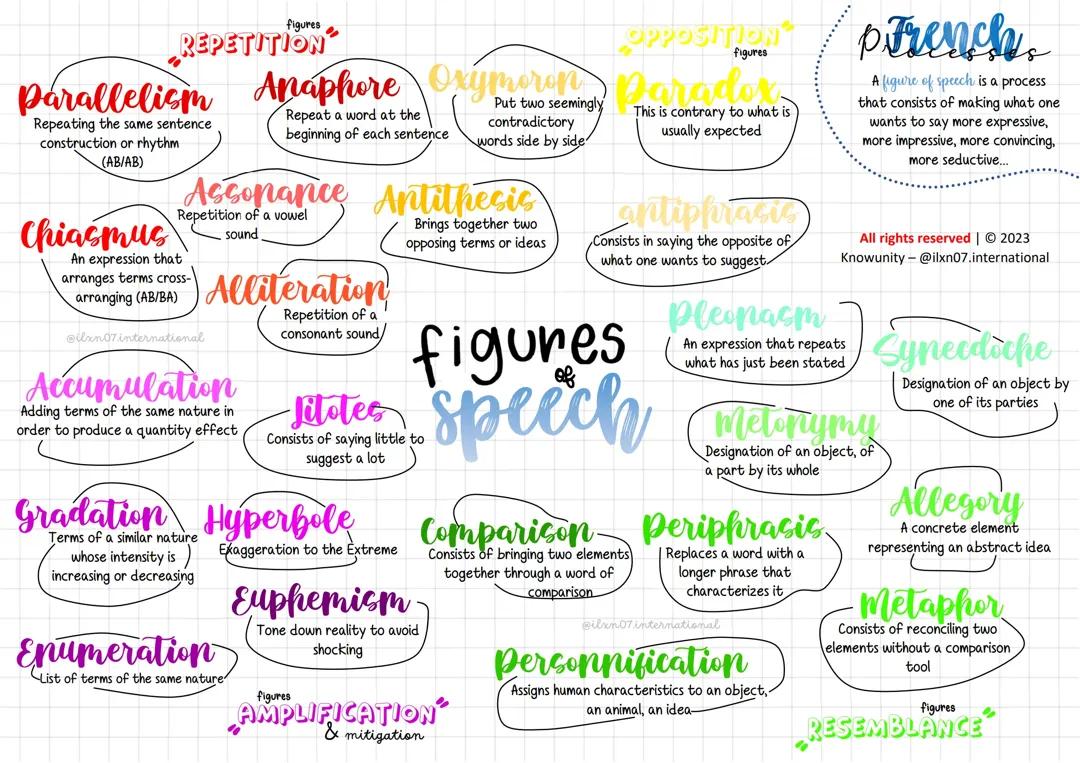 figures
"REPETITION"
Parallelism
Repeating the same sentence
construction or rhythm
(AB/AB)
Anaphore
Repeat a word at the
beginning of each sentence
Assonance
Repetition of a vowel
sound
Chiasmus
An expression that
arranges terms cross-
arranging (AB/BA)
Alliteration
Repetition of a
consonant sound
@ilxn07.international
"OPPOSITION"
figures
Oxymoron
Put two seemingly
contradictory
words side by side
Paradox
This is contrary to what is
usually expected
Antithesis
Brings together two
opposing terms or ideas
antiphrasis
Consists in saying the opposite of
what one wants to suggest
French
Processes
A figure of speech is a process
that consists of making what one
wants to say more expressive,
more impressive, more convincing,
more seductive...
All rights reserved | © 2023
Knowunity – @ilxn07.international
figures
of
speech
Accumulation
Adding terms of the same nature in
order to produce a quantity effect
Litotes
Consists of saying little to
suggest a lot
Gradation
Terms of a similar nature
whose intensity is
increasing or decreasing
Hyperbole
Exaggeration to the Extreme
Euphemism
Tone down reality to avoid
shocking
Enumeration
List of terms of the same nature
figures
"AMPLIFICATION"
& mitigation
Pleonasm
An expression that repeats
what has just been stated
Synecdoche
Designation of an object by
one of its parties
Metonymy
Designation of an object, of
a part by its whole
Allegory
A concrete element
representing an abstract idea
Comparison
Consists of bringing two elements
together through a word of
comparison
Periphrasis
Replaces a word with a
longer phrase that
characterizes it
Metaphor
Consists of reconciling two
elements without a comparison
tool
@ilxn07.international
Personnification
Assigns human characteristics to an object,
an animal, an idea
figures
"RESEMBLANCE"